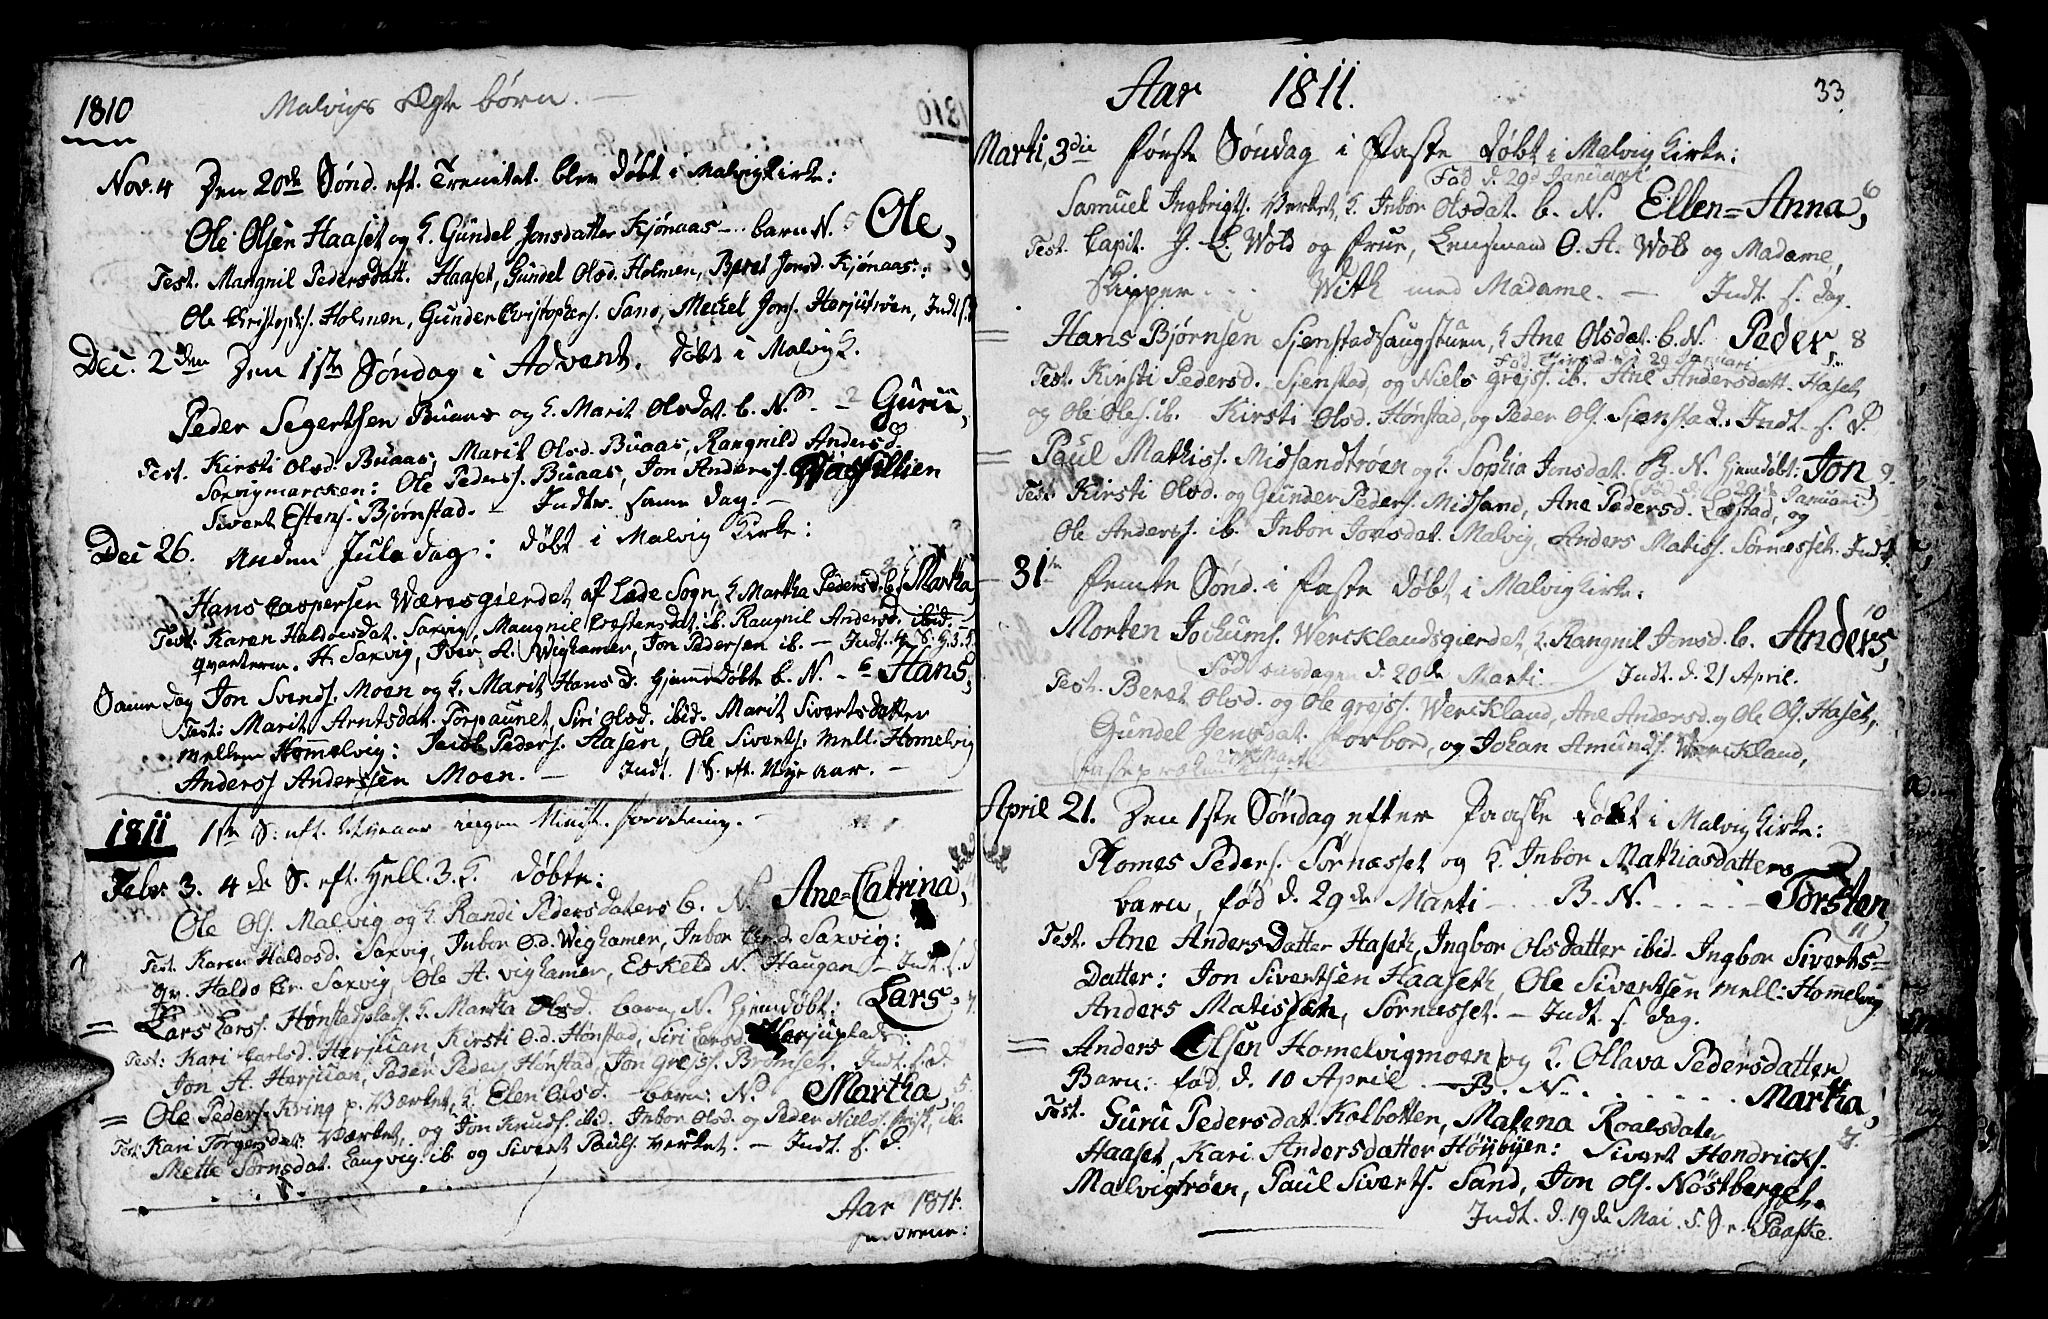 1810 Malvigs Ægte børn.
Nov. 4 Den 20de Sønd. eft. Trenitat. blev døbt i Malvig Kirke:
Ole Olsen Haaset og H. Gundel Jonsdatter Kjønaas barn N. Ole,
Test. Mangnil Pedersdatt. Haaset, Gundel Olsd. Holmen, Beret Jonsd. Kjønaas:
Ole Christophs. Holmen, Gunder Christophers. Sand, Meckel Jons. Herjuerøen, Indt.
Dec. 2den Den 1ste Søndag i Advent. døbt i Malvig K.
Peder Segertsen Buaas og H. Marit Olsdat. b. N. Guru,
Test. Kirsti Olsd. Buaas, Marit Olsd. Buaas, Rangnild Andersd.
Saxvigmarcken: Ole Peders. Buaas, Jon Anders.
Sivert Estens. Bjørnstad. – Indtr. samme dag. –
Dec 26. Anden Juledag: døbt i Malvig Kirke:
Hans Caspersen Wæresgierdet af Lade Sogn, H. Martha Pedersd. b. Martha,
Test. Karen Haldosdat. Saxvig, Mangnil ib. Rangnil Andersd. ibid.
H. Saxvig, Iver A. Wighamer, Jon Pedersen ib. – Indt.
Samme dag Jon Svends. Moen og H. Marit Hans D. hjemmedøbte b. N. 6 Hans,
Test: Marit Arntsdat. Torpaunet, Siri Olsd. ibid. Marit Sivertsdatter
mellem Homelvig: Peders. Aasen, Ole Siverts. Mell. Homelvig
Anders Anderssen Moen. – Indt. 1 S. eft. Nyeaar. –
1811 1ste S. eft. Nyeaar ingen Minist. forretning. –
Febr 3. 4de S. eft. Hell. 3 K. døbte:
Ole Ols. Malvig og H. Randi Pedersdaters b. N. Ane=Catrina,
Test. Karen Haldosd. Saxvig, Inbor O.d. Wighamer, Inbor Saxvig:
gr. Haldo Saxvig Ole A. vighamer, Eskeld N. Haugan – Indt. s. d
= Lars Lars. Hønstadplads. H. Martha Olsd. barn N. Hjemdøbt: Lars,
Test: Kari Carlsd. Herjuan, Kirsti O.d. Hønstad, Siri Larsd. Herjuplads:
Jon A. Herjuan, Peder Peders Hønstad, Jon Grejss. Brømset. Indt. s. d.
= Ole Peders. Kring p. Værket, H. Elen Olsd. – barn: N. Martha, 5
Test: Kari Torgersdat: Værket, og Jon Knuds. ibid. Inbor Olsd. og Peder Niels. ib.
Mette Sørnsdat. Langvig. ib og Sivert Pauls. Verket. – Indt. s. D.
Aar 1811.
Aar 1811. 33
Marti, 3die Første Søndag i Faste døbt i Malvig Kirke:
Fød d. 29d Januarii
Samuel Ingbrigts. Verket, H. Inbor Olsdat. b. N. Ellen=Anna, 6
Test. Capit. J. L. Wold og Frue, Lensmand O. A. Wold og Madame,
Skipper . . . With med Madame. – Indt. s. dag.
= Hans Bjørnsen Sjenstadsaugstuen, H. Ane Olsdat. b. N. Peder 8
Fød d. 29 Januari
Test. Kirsti Pedersd. Sjenstad, og Niels Grejss. ib. Ane Andersdatt. Haset
og Ole Oles. ib. Kirsti Olsd. Hønstad, og Peder Ols. Sjenstad. Indt. s. D.
= Paul Mathiss. Midsandtrøen og H. Sophia Jonsdat. B. N. Hjemdøbt: Jon, 9.
Fød d. 29de Januarii
Test: Kirsti Olsd. og Gunder Peders. Midsand, Ane Pedersd. Leistad, og
Ole Anders. ib. Inbor Jonsdat. Malvig, Anders Matiss. Sørnesset. Indt.
31te Femte Sønd. i Faste døbt i Malvig Kirke:
10
Morten Jochums. Wercklandsgierdet, H. Rangnil Jonsd. b. Anders,
Fød onsdagen d. 20de Marti Indt. d. 21 April.
Test. Beret Olsd. og Ole Grejss. Werckland, Ane Andersd. og Ole Ols. Haset,
Gundel Jensdat. Forbord, og Johan Amunds. Werckland,
April 21. Den 1ste Søndag efter Paaske døbt i Malvig Kirke:
Thomes Peders. Sørnæsset og H. Inbor Mathiasdatters
barn, fød d. 29de Marti B. N. Torsten
11
Test. Ane Andersdatter Haseth, Ingbor Olsdatter ibid. Ingbor Siverts=
datter: Jon Sivertsen Haaseth, Ole Sivertsen mell: Homelvig
Anders Matissen, Sørnesset. – Indt s. dag.
= Anders Olsen Homelvigmoen og H. Ollava Pedersdatter
Barn: fød d. 10 April – B. N. Martha,
Test. Guru Pedersdat. Kalbotten, Malena Roalsdater
Haaset, Kari Andersdatter Høybyen: Sivert Hendricks.
Malvigtrøen, Paul Siverts. Sand, Jon Ols. Nøstberget.
Indt. d. 19de Mai 5. S. e. Paaske.